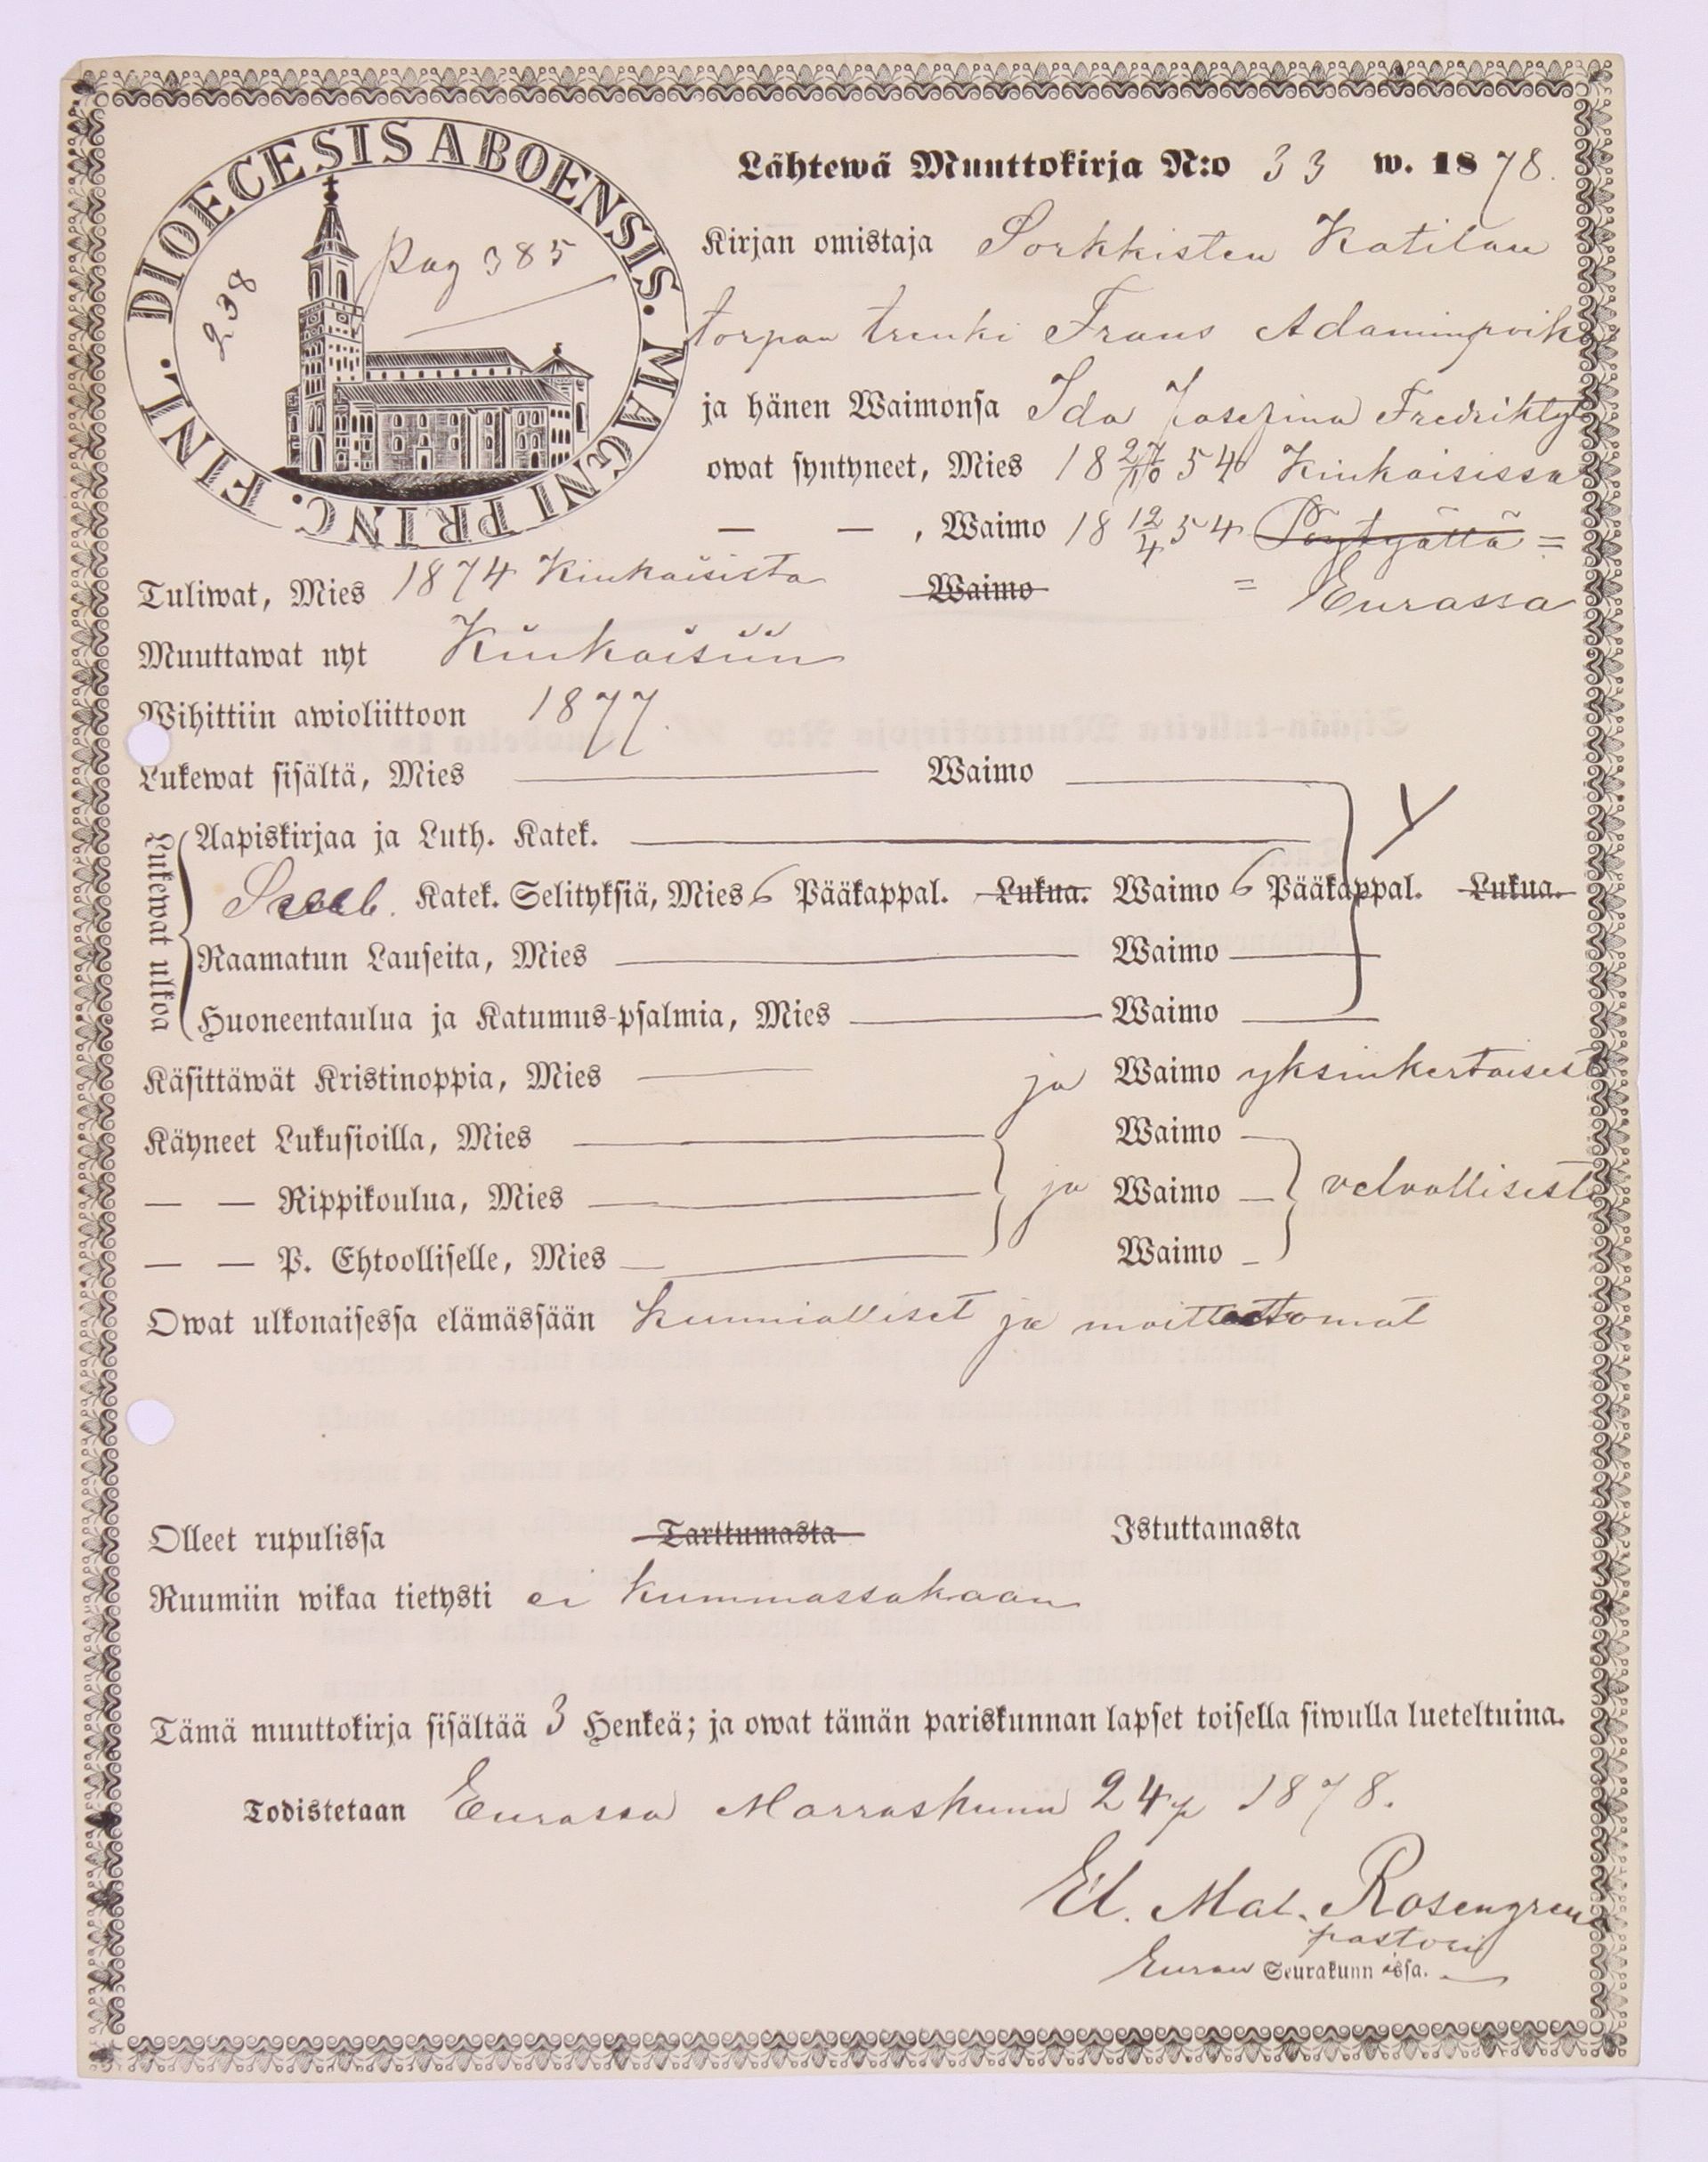 DIOECESIS ABOENSIS. MAGNI PRINC. FINL.
238
Pag 385
Lähtewä Muuttokirja N:o 33 w. 1878.
Kirjan omistaja Sorkkisten Katilan
torpan trenki Frans Adaminpoika
ja hänen Waimonsa Ida Josefina Fredrikty
owat syntyneet, Mies 18 27/10 54 Kiukaisissa
— — , Waimo 18 12/4 54 Pöytyällä =
Tuliwat, Mies 1874 Kiukaisista Waimo = Eurassa
Muuttawat nyt Kiukaisiin
Wihittiin awioliittoon 1877.
Lukewat sisältä, Mies — Waimo —
Lukewat ulkoa
Aapiskirjaa ja Luth. Katek. —
Katek. Selityksiä, Mies 6 Pääkappal. Lukua. Waimo 6 Pääkappal. Lukua.
Raamatun Lauseita, Mies — Waimo —
Huoneentaulua ja Katumus-psalmia, Mies — Waimo —
Käsittäwät Kristinoppia, Mies — ja Waimo yksinkertaisest
Käyneet Lukusioilla, Mies — Waimo —
— — Rippikoulua, Mies — ja Waimo — velvollisest
— — P. Ehtoolliselle, Mies — Waimo —
Owat ulkonaisessa elämässään kunnialliset ja moitteettomat
Olleet rupulissa Tarttumasta Istuttamasta
Ruumiin wikaa tietysti ei kummassakaan
Tämä muuttokirja sisältää 3 Henkeä; ja owat tämän pariskunnan lapset toisella siwulla lueteltuina.
Todistetaan Eurassa Marraskuun 24 p 1878.
El. Mat. Rosengren
pastori
Euran Seurakunnissa.